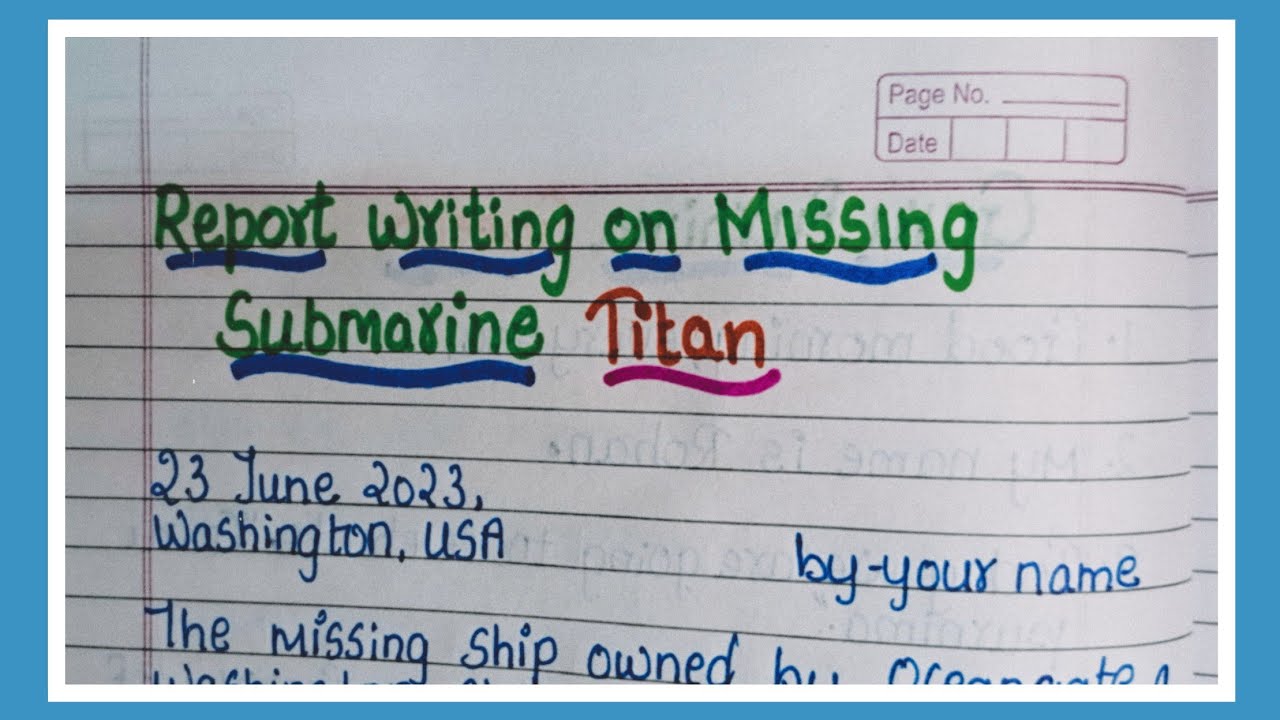 Page No.
Date
Report Writing on Missing
Submarine Titan
23 June 2023,
Washington, USA
by-your name
The missing ship owned by Oceangate